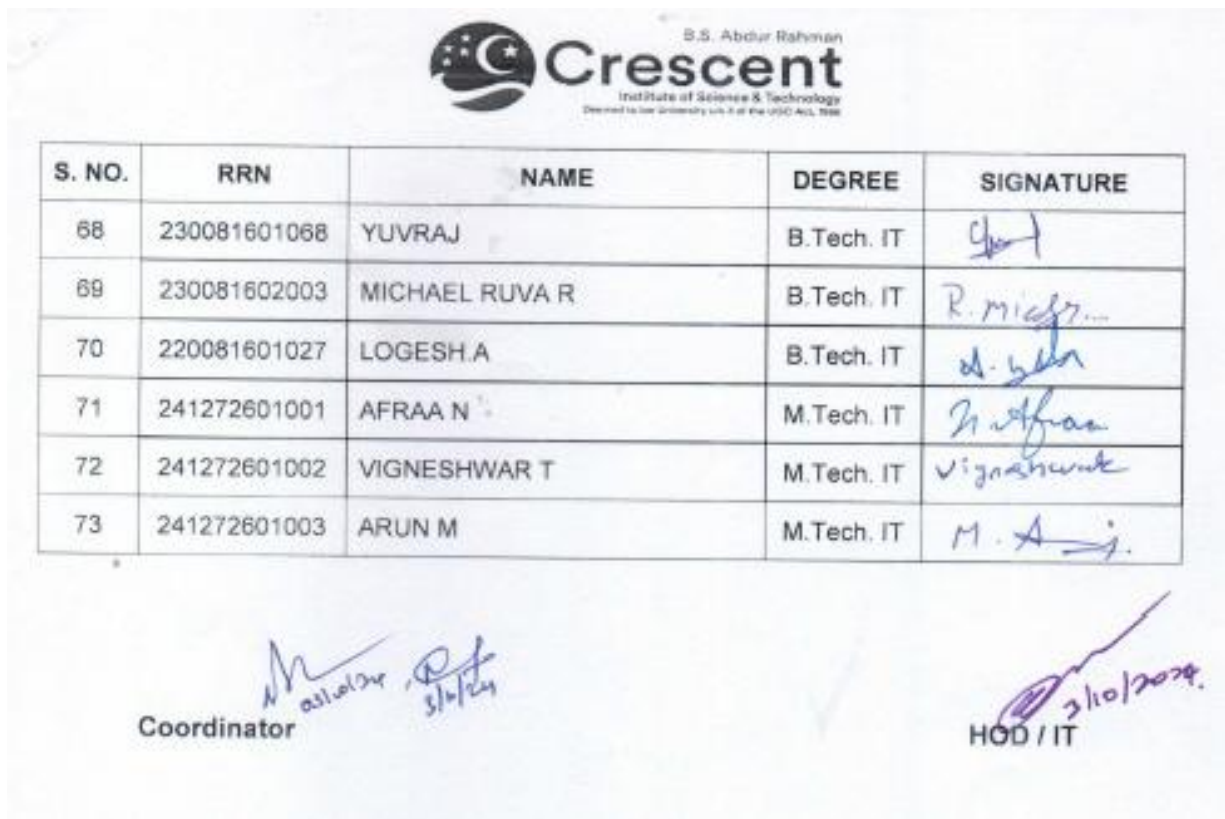 B.S. Abdur Rahman
Crescent
Institute of Science & Technology
Deemed to be University u/s 3 of the UGC Act, 1956
S. NO. RRN NAME DEGREE SIGNATURE
68 230081601068 YUVRAJ B.Tech. IT
69 230081602003 MICHAEL RUVA R B.Tech. IT R.
70 220081601027 LOGESH.A B.Tech. IT A.
71 241272601001 AFRAA N M.Tech. IT N Afraa
72 241272601002 VIGNESHWAR T M.Tech. IT Vigneshwar
73 241272601003 ARUN M M.Tech. IT M.
03/10/24, 3/10/24
3/10/2024.
Coordinator HOD / IT